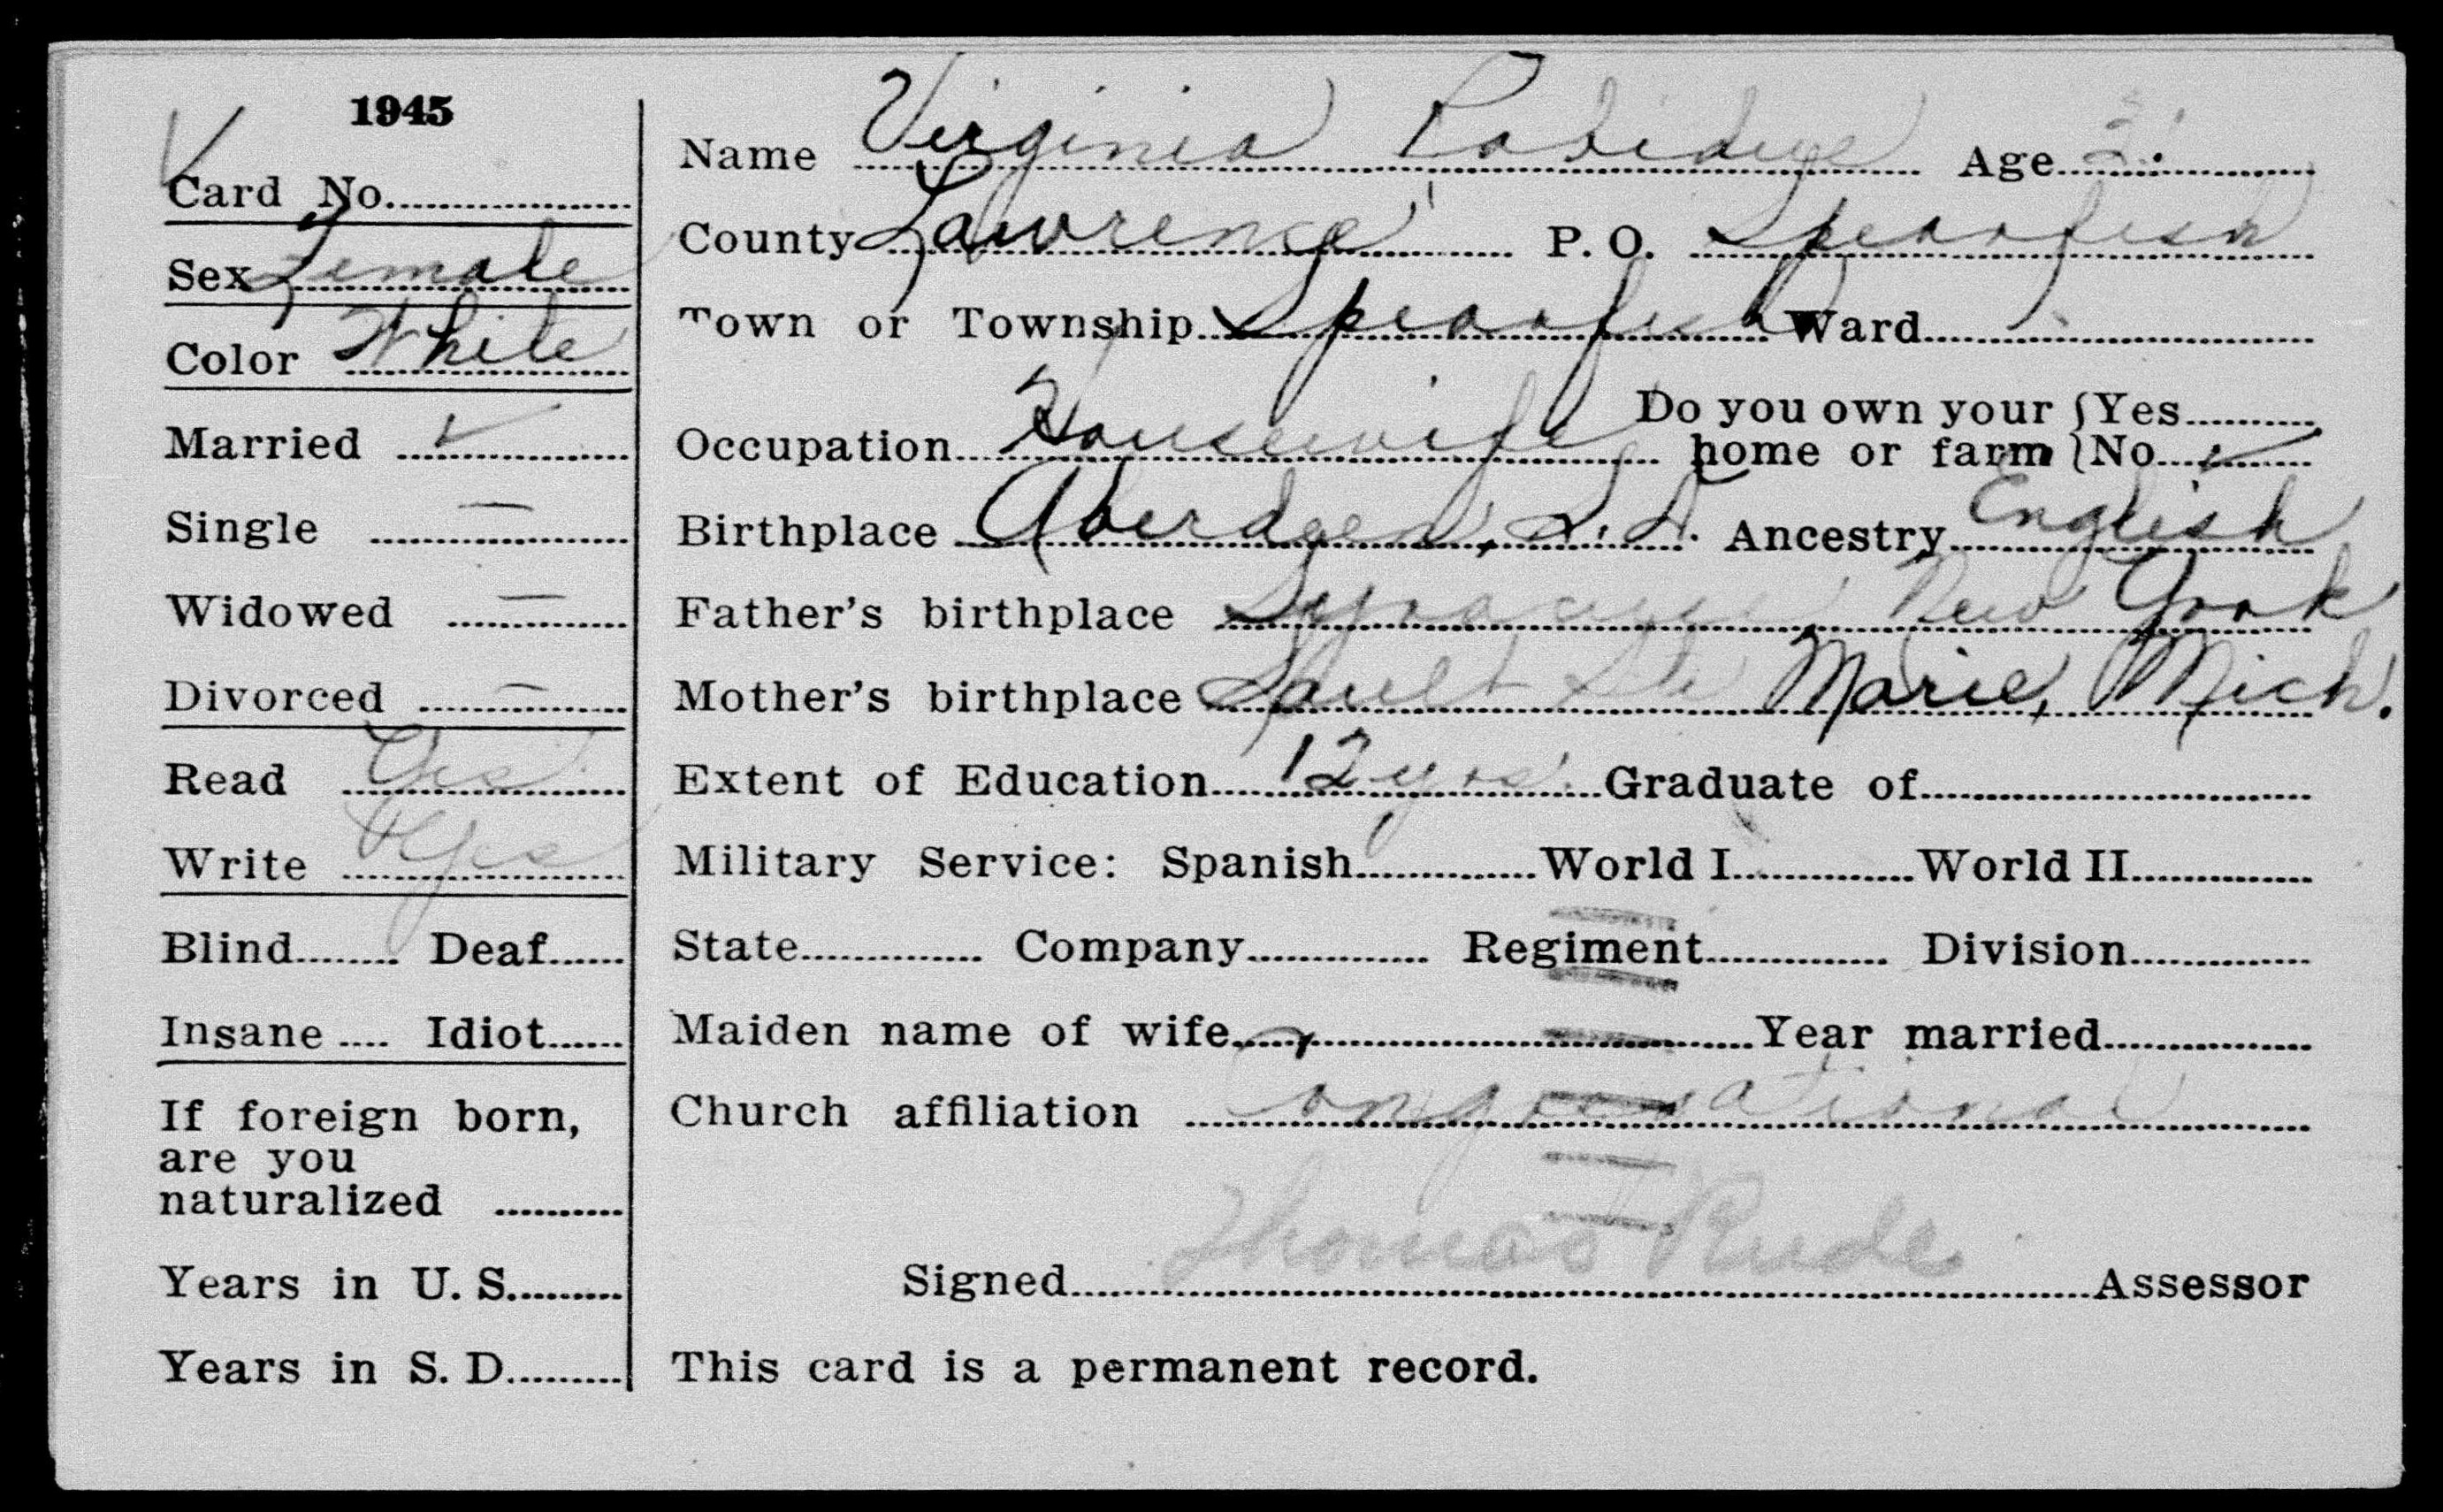 1945
Card No.
Sex Female
Color White
Married ✓
Single —
Widowed —
Divorced —
Read Yes
Write Yes
Blind Deaf
Insane Idiot
If foreign born,
are you
naturalized
Years in U. S.
Years in S. D.
Name Virginia Age
County Lawrence P. O. Spearfish
Town or Township Spearfish Ward
Occupation Housewife Do you own your home or farm Yes No ✓
Birthplace Aberdeen, S. D. Ancestry English
Father's birthplace Syracuse, New York
Mother's birthplace Sault Ste Marie, Mich.
Extent of Education 12 yrs. Graduate of
Military Service: Spanish World I World II
State Company Regiment Division
Maiden name of wife Year married
Church affiliation Congregational
Signed Thomas Rude Assessor
This card is a permanent record.